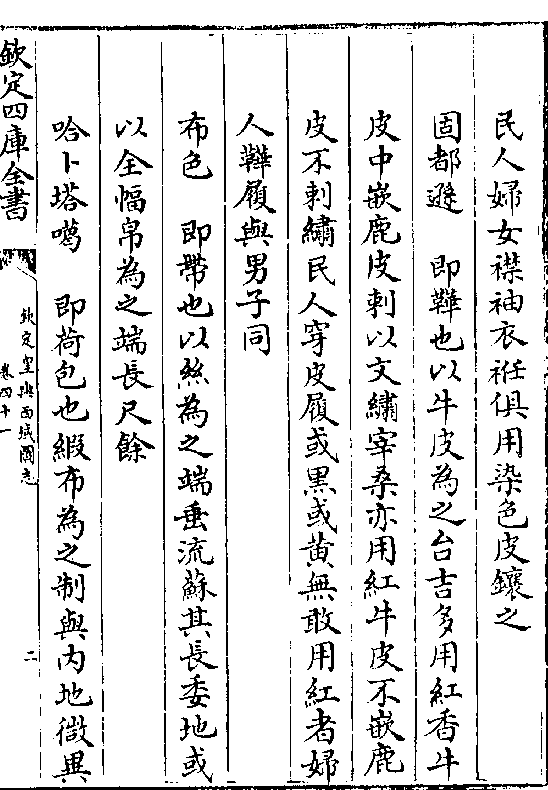 民人婦女襟袖衣袵俱用染色皮鑲之
固都遜　即鞾也以牛皮為之台吉多用紅香牛
皮中嵌鹿皮刺以文繡宰桑亦用紅牛皮不嵌鹿
皮不刺繡民人穿皮履或黑或黄無敢用紅者婦
人鞾履與男子同
布色　即帶也以絲為之端垂流蘇其長委地或
以全幅帛為之端長尺餘
哈卜塔噶　即荷包也緞布為之制與内地微異
欽定四庫全書
欽定皇輿西域圖志
卷四十一
二